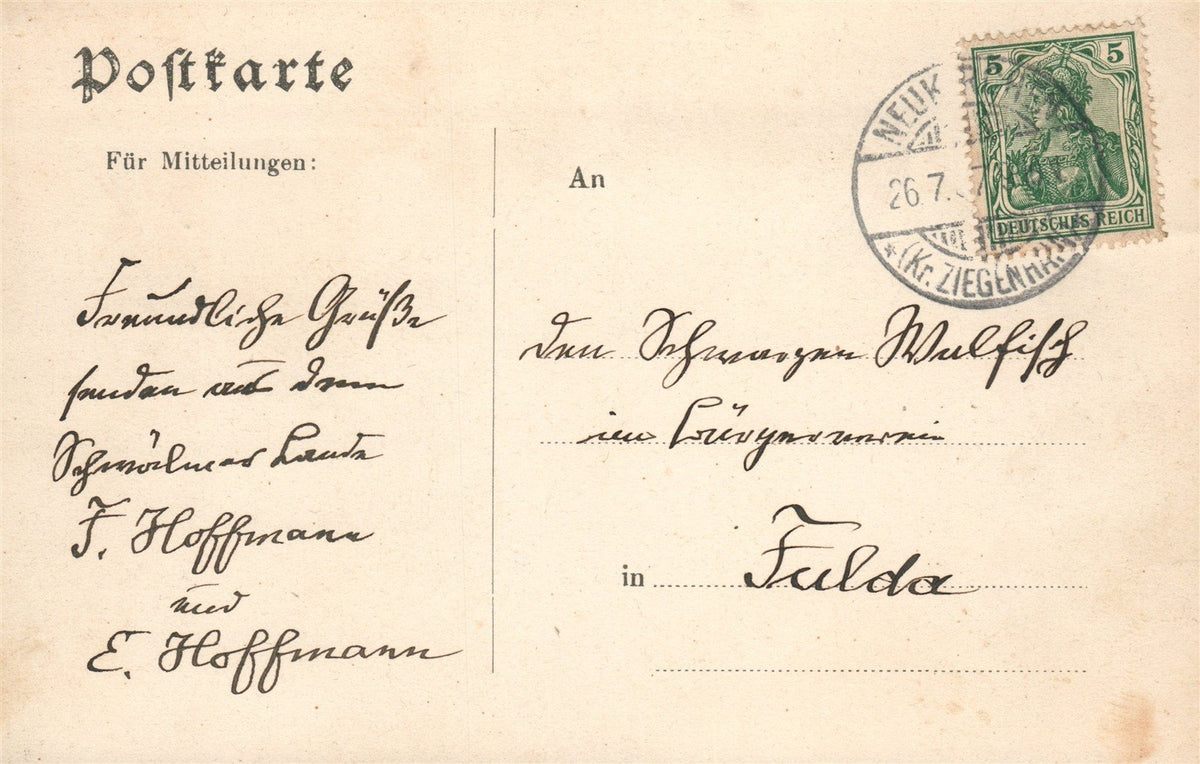 Postkarte
Für Mitteilungen:
An
5 5
DEUTSCHES REICH
NEUK
26 7
* (Kr. ZIEGENHAIN
Freundliche Grüße
senden aus dem
Schwälmer Lande
F. Hoffmann
und
E. Hoffmann
den Schwarzen Walfisch
im Bürgerverein
in Fulda